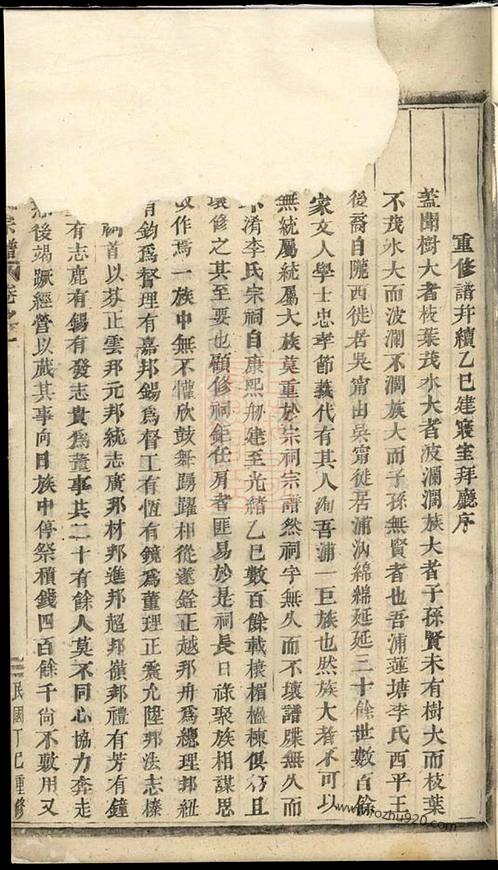 重修譜并續乙巳建寢室拜廳序
蓋聞樹大者枝葉茂水大者波瀾濶族大者子孫賢未有樹大而枝葉
不茂水大而波瀾不濶族大而子孫無賢者也吾浦蓮塘李氏西平王
後裔自隴西徙居吳甯由吳甯徙居浦汭綿綿延延三十餘世數百餘
家文人學士忠孝節義代有其人洵吾浦一巨族也然族大者不可以
無統屬統屬大族莫重於宗祠宗譜然祠宇無久而不壞譜牒無久而
不淆李氏宗祠自康熙刱建至光緒乙巳數百餘載榱楣楹棟俱 且
壞修之其至要也顧修祠鉅任肩者匪易於是祠長日祿聚族相謀思
作焉一族中無不懽欣鼓舞踴躍相從遂銓正越邦舟為總理邦紐
有鈞為督理有嘉邦錫為督工有恆有鏡為董理正喬允陞邦法志榛
嗣首以芬正雲邦元邦統志廣邦材邦進邦超邦嶺邦禮有芳有鐘
有志鹿有錫有發志貴為董事共二十有餘人莫不同心協力奔走
後竭蹶經營以蕆其事向日族中停祭積錢四百餘千尙不敷用又
宗譜 卷之
民國丁巳重修
www.rozhu920.com